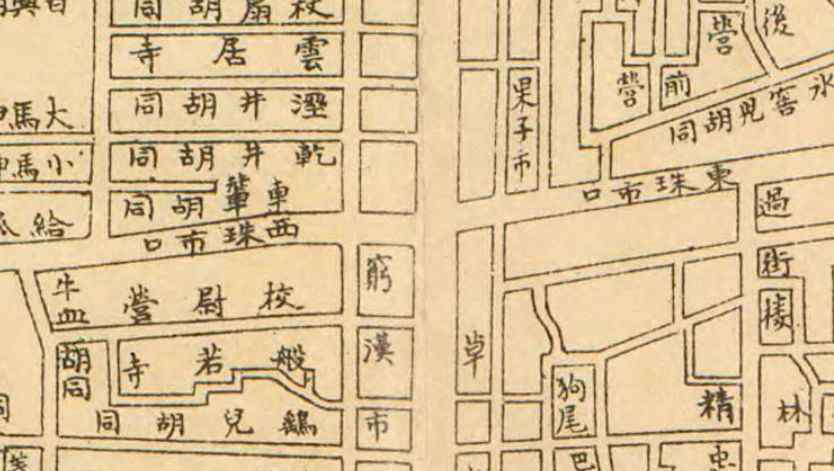 同胡扇
寺居雲
同胡井溼
同胡井乾
同胡輦車
口市珠西
大馬
小馬
給
牛血胡同
營尉校
寺若般
同胡兒鷂
窮漢市
果子市
營
後
營
前
同胡兒窖冰
口市珠東
過街樓
草
狗尾巴
精忠
林